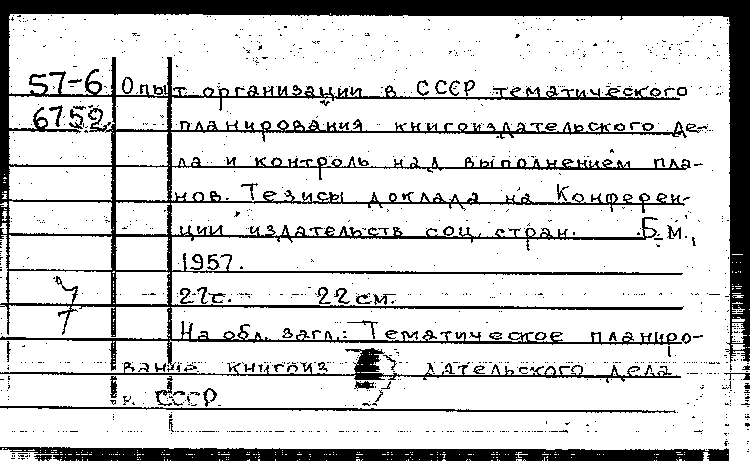 57-6 Опыт организации в СССР тематического
6752 планирования книгоиздательского де-
ла и контроль над выполнением пла-
нов. Тезисы доклада на Конферен-
ции издательств соц. стран. Б.м.,
1957.
7 27с. 22 см.
На обл. загл.: Тематическое планиро-
вание книгоиздательского дела
в СССР